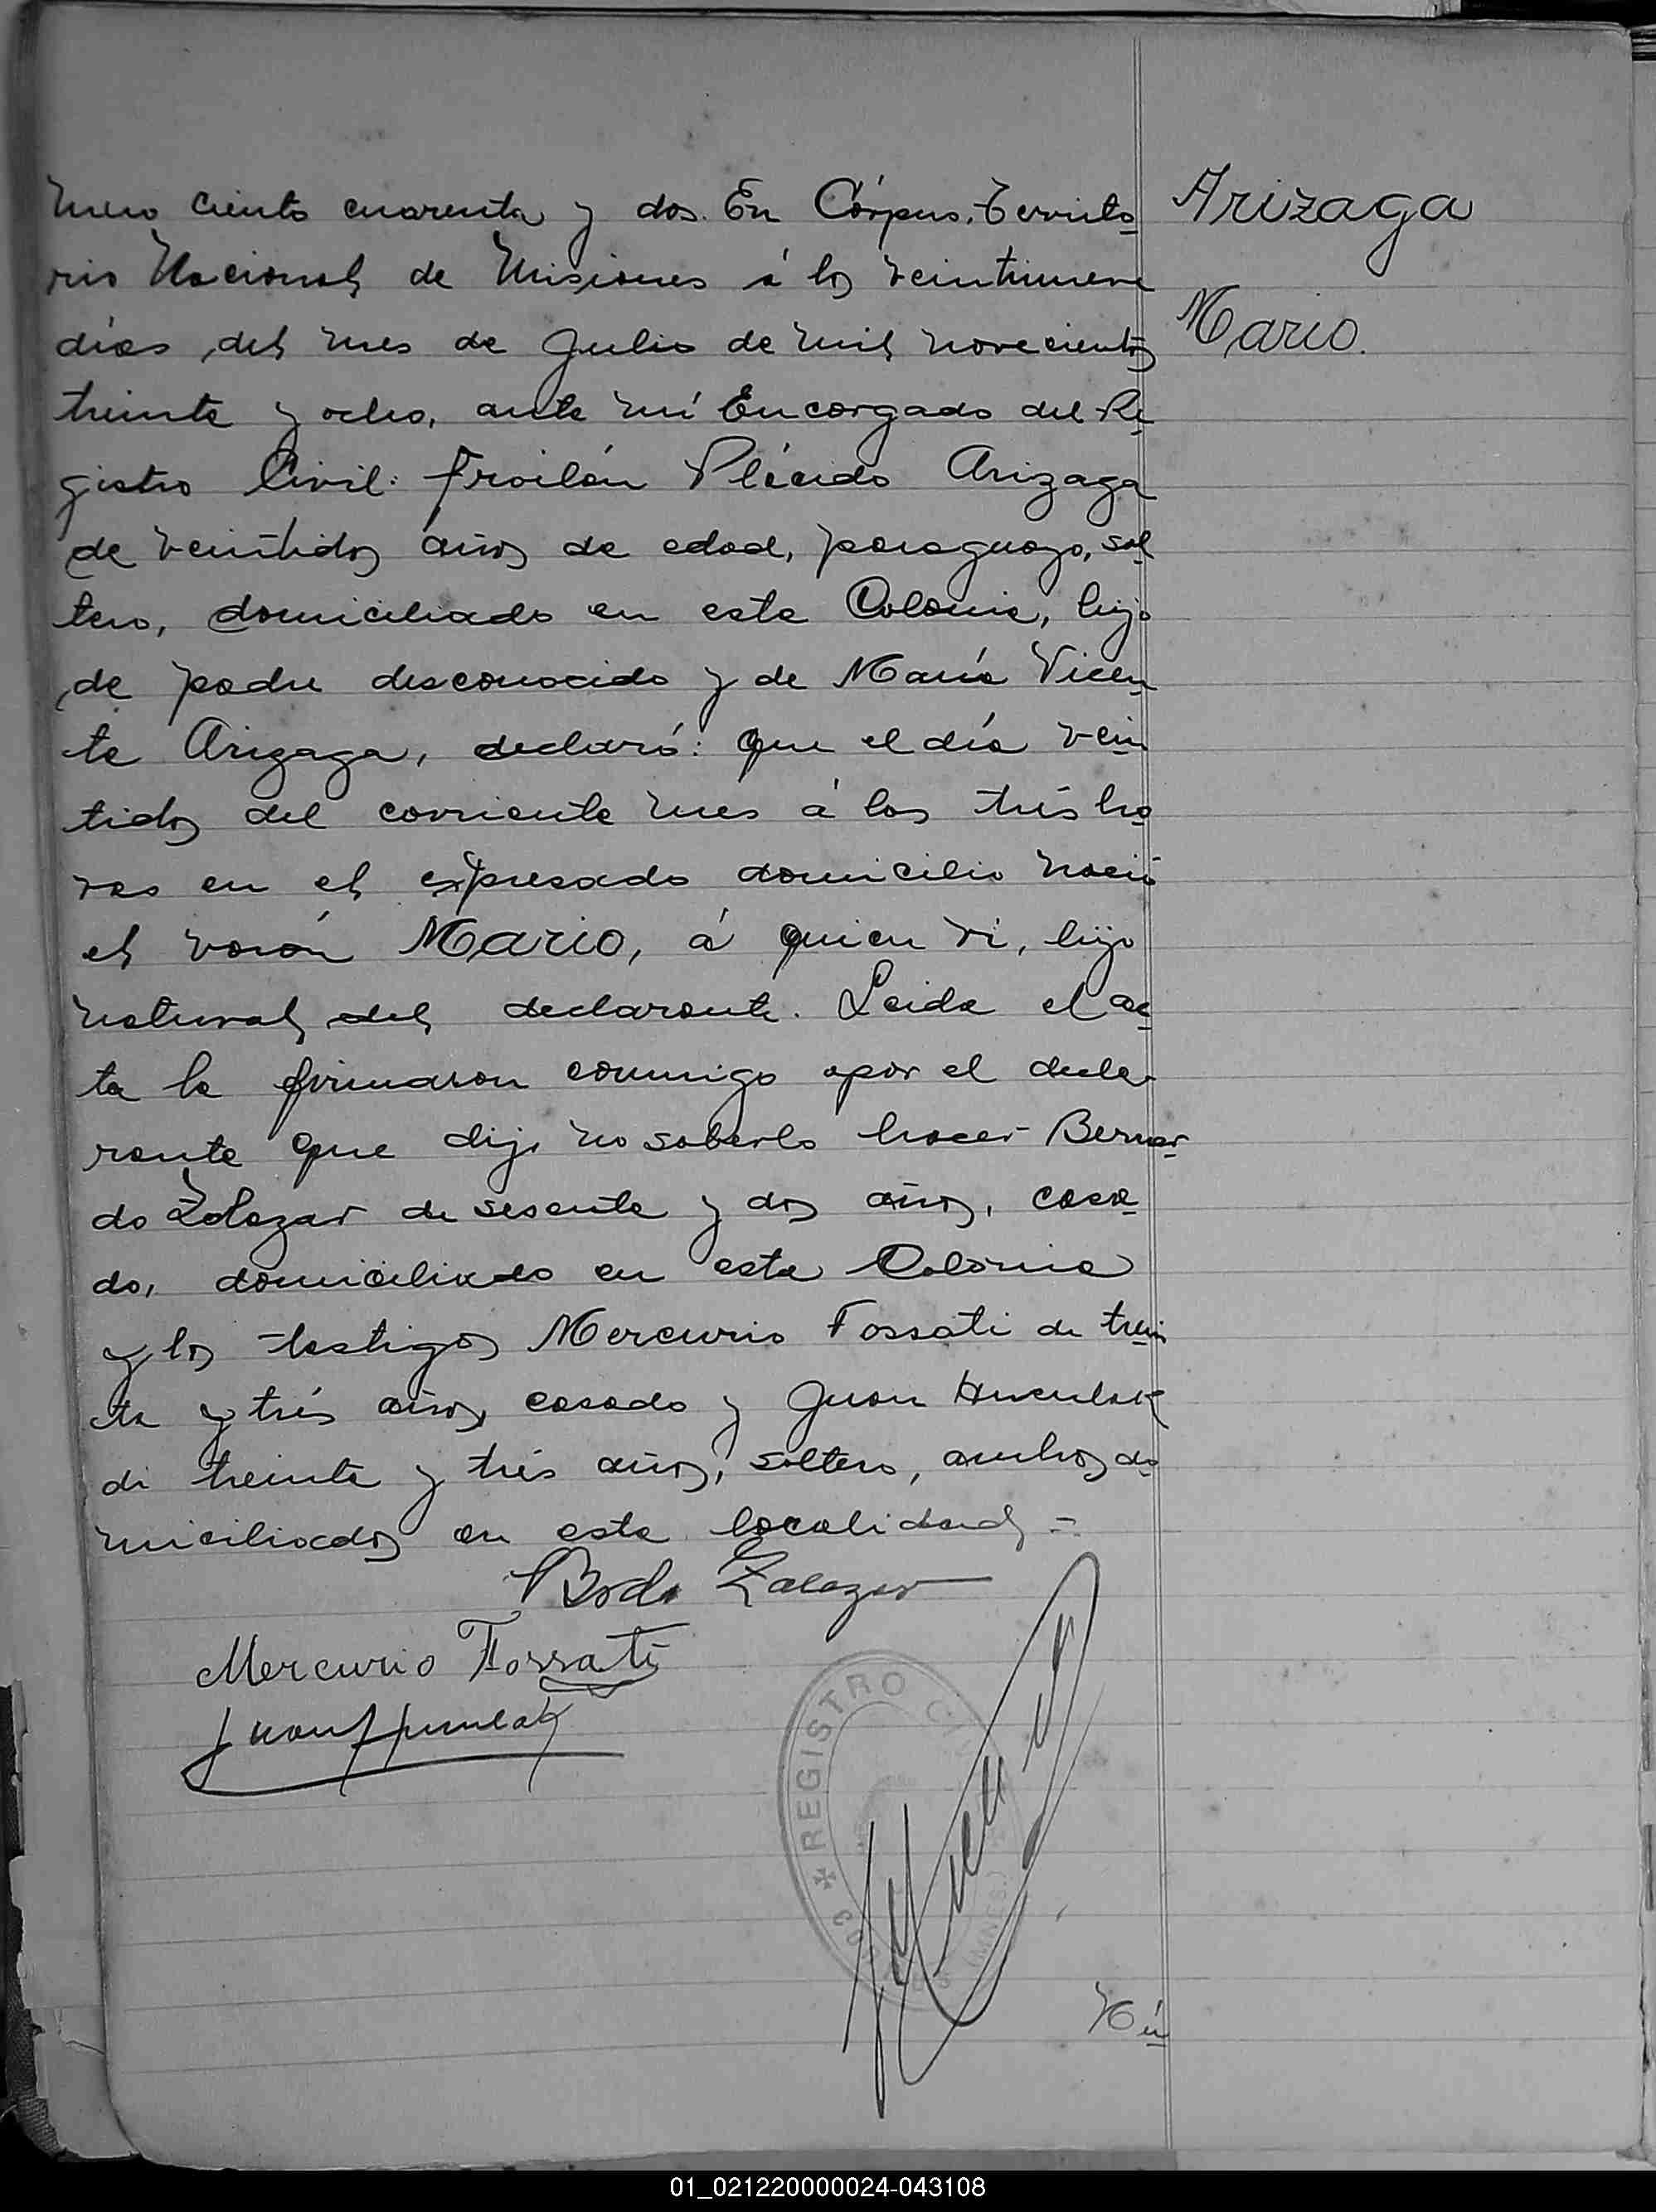 mero ciento cuarenta y dos. En Córpus, Territo
rio Nacional de Misiones á los veintinueve
días del mes de Julio de mil novecientos
treinta y ocho, ante mí Encargado del Re
gistro Civil: Froilán Plácido Arizaga
de veintidos años de edad, paraguayo, sol
tero, domiciliado en esta Colonia, hijo
de padre desconocido y de María Vicen
ta Arizaga, declaró: que el día vein
tidos del corriente mes á las trés ho
ras en el expresado domicilio nació
el varón MARIO, á quien vi, hijo
natural del declarante. Leida el ac
ta la firmaron conmigo por el decla-
rante que dijo no saberlo hacer Bernar
do Zalazar de sesenta y dos años, casa
do, domiciliado en esta Colonia
y los testigos Mercurio Fossati de trein
ta y trés años, casado y Juan Huculak
de treinta y trés años, soltero, ambos do
miciliados en esta localidad =
Bdo Zalazar
Mercurio Fossati
Juan Huculak
Arizaga
Mario.
REGISTRO CIVIL
Nú
01_021220000024-043108